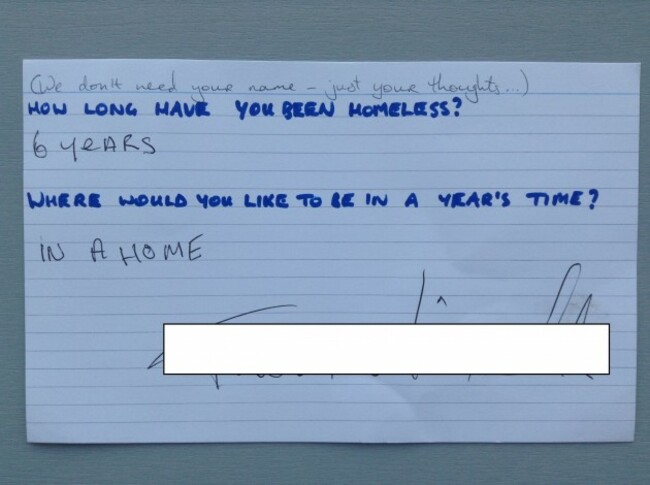 (We don't need your name - just your thoughts...)
HOW LONG HAVE YOU BEEN HOMELESS?
6 YEARS
WHERE WOULD YOU LIKE TO BE IN A YEAR'S TIME?
IN A HOME